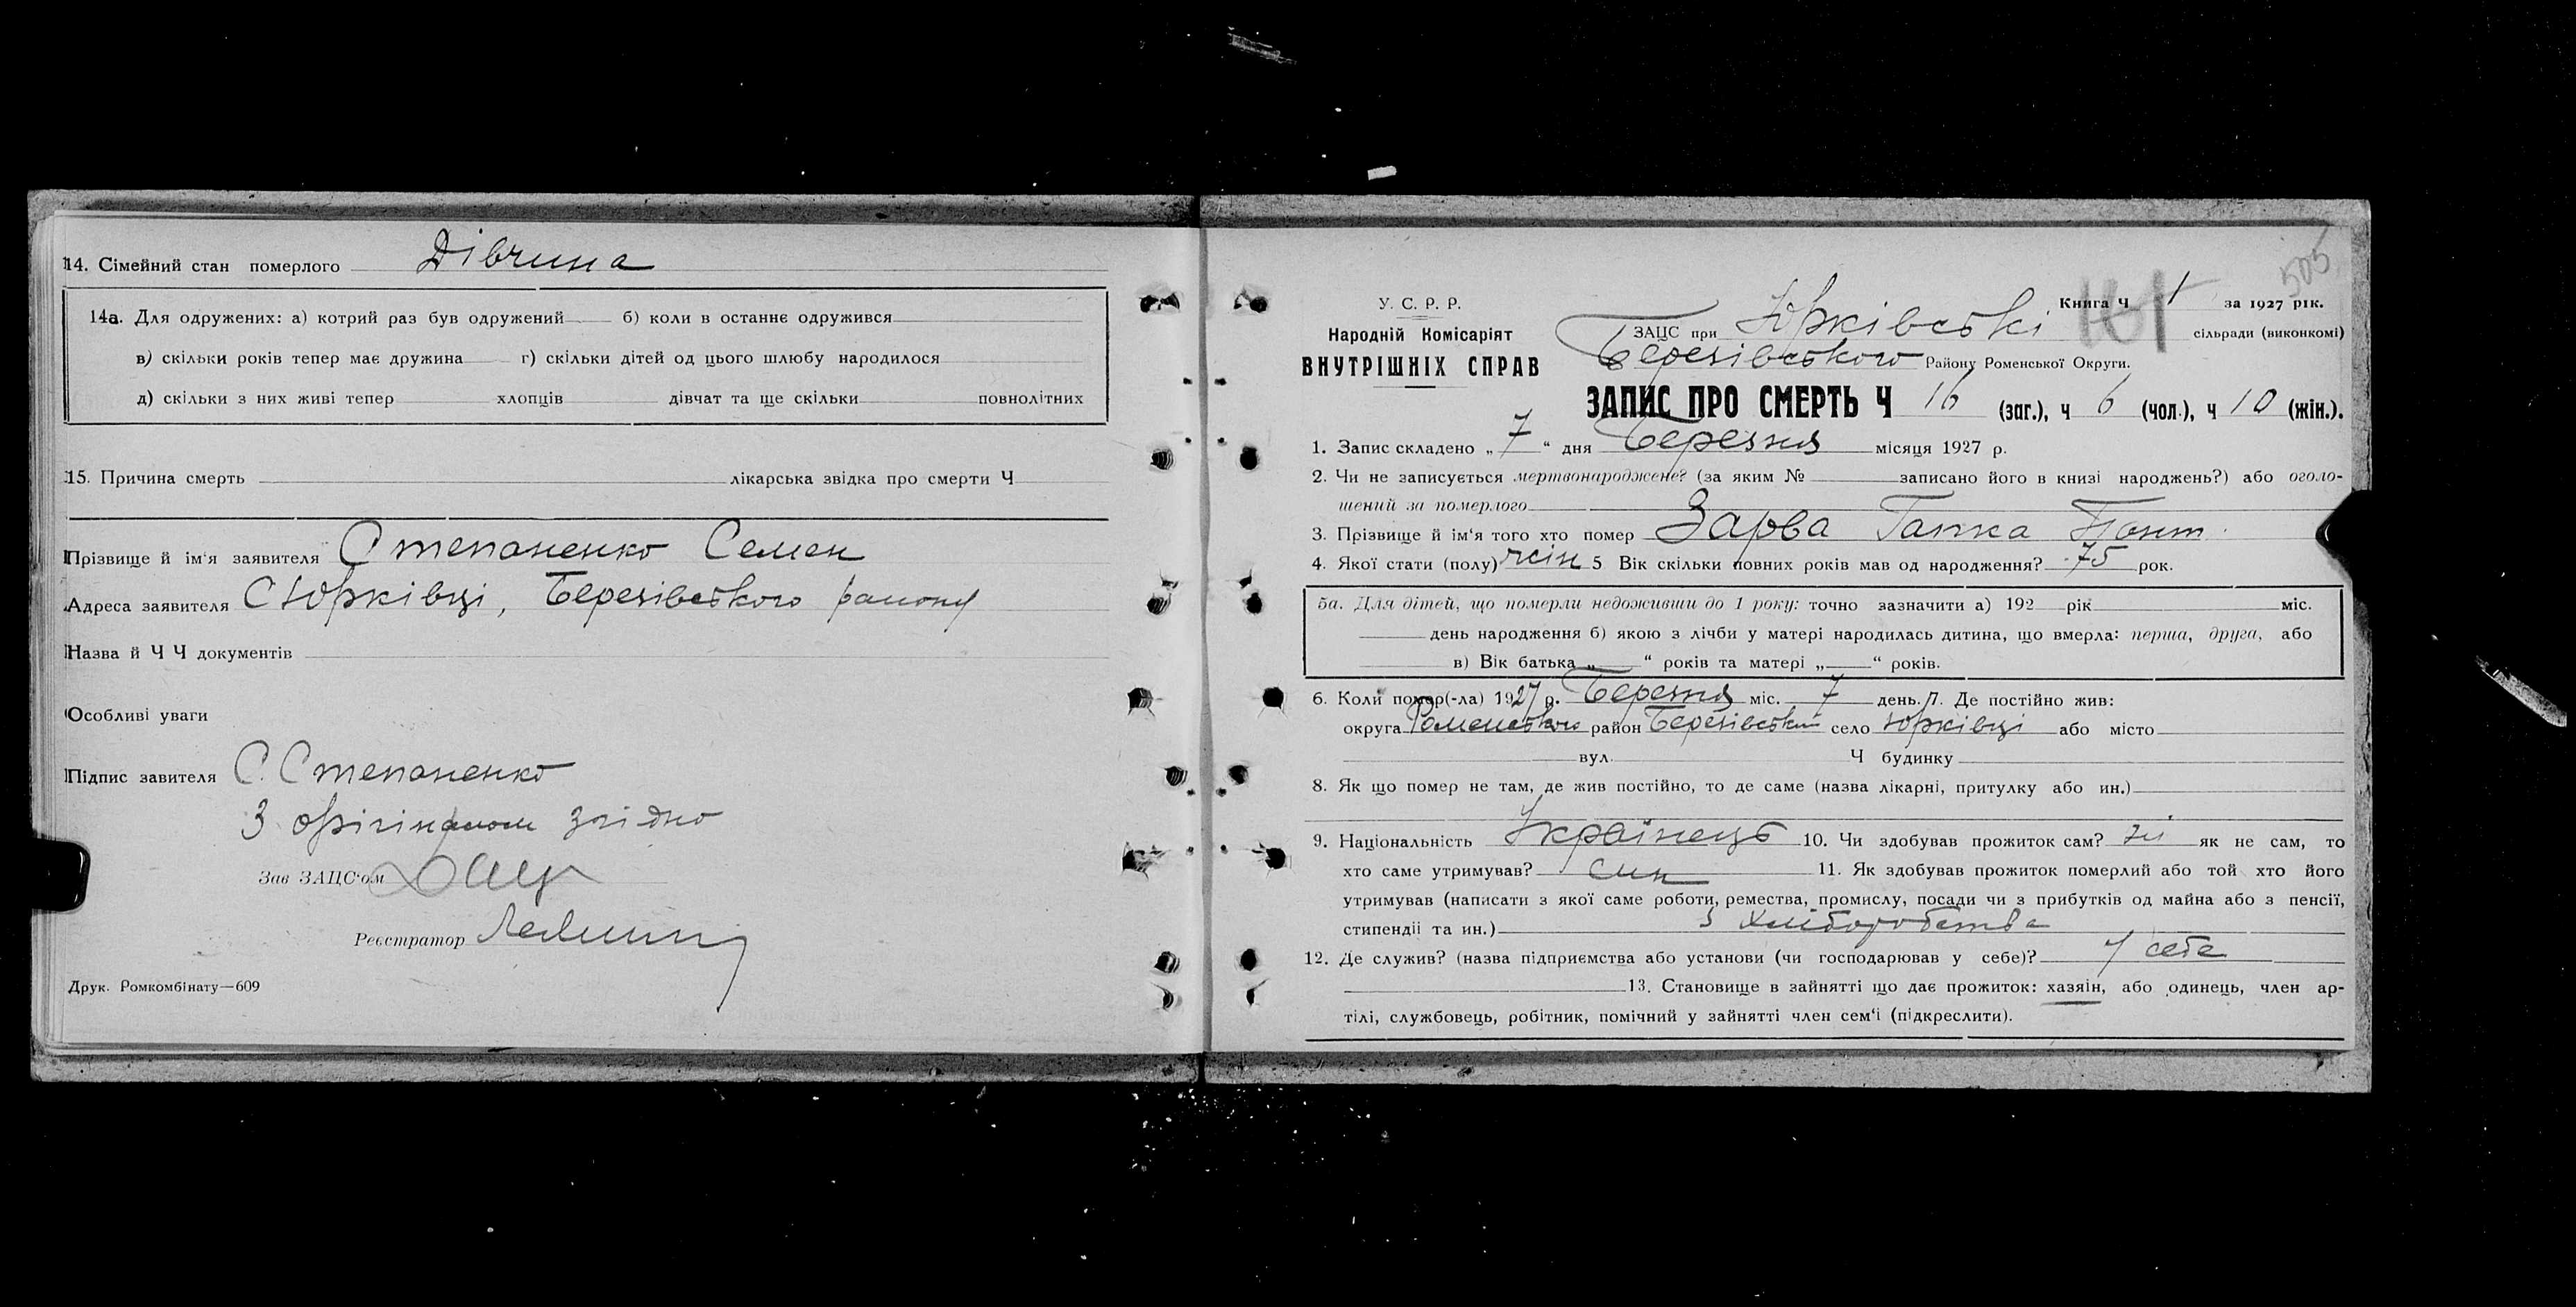 14. Сімейний стан померлого Дівчина
14а. Для одружених: а) котрий раз був одружений б) коли в останнє одружився
в) скільки років тепер має дружина г) скільки дітей од цього шлюбу народилося
д) скільки з них живі тепер хлопців дівчат та ще скільки повнолітних
15. Причина смерть лікарська звідка про смерти Ч
Прізвище й ім'я заявителя Степаненко Семен
Адреса заявителя С Юрківці, Березівського району
Назва й Ч Ч документів
Особливі уваги
Підпис завителя С. Степаненко
З орігіналом згідно
Зав ЗАЦС'ом
Реєстратор
Друк. Ромкомбінату—609
505
У. С. Р. Р.
Народній Комісаріят
ВНУТРІШНІХ СПРАВ
Книга Ч 1 за 1927 рік.
ЗАЦС при Юрківські сільради (виконкомі)
Березівського Району Роменської Округи.
ЗАПИС ПРО СМЕРТЬ Ч 16 (заг.), ч 6 (чол.), ч 10 (жін.).
1. Запис складено „7“ дня Березня місяця 1927 р.
2. Чи не записується мертвонароджене? (за яким № записано його в книзі народжень?) або оголо-
шений за померлого
3. Прізвище й ім'я того хто помер Зарва Гапка Понт.
4. Якої стати (полу) жін 5 Вік скільки повних років мав од народження? 75 рок.
5а. Для дітей, що померли недоживши до 1 року: точно зазначити а) 192 рік міс.
день народження б) якою з лічби у матері народилась дитина, що вмерла: перша, друга, або
в) Вік батька „ “ років та матері „ “ років.
6. Коли помер(-ла) 1927 р. Березня міс. 7 день. 7. Де постійно жив:
округа Роменського район Березівський село Юрківці або місто
вул. Ч будинку
8. Як що помер не там, де жив постійно, то де саме (назва лікарні, притулку або ин.)
9. Національність Українець 10. Чи здобував прожиток сам? ні як не сам, то
хто саме утримував? син 11. Як здобував прожиток померлий або той хто його
утримував (написати з якої саме роботи, ремества, промислу, посади чи з прибутків од майна або з пенсії,
стипендії та ин.) з хліборобства
12. Де служив? (назва підприємства або установи (чи господарював у себе)? у себе
13. Становище в зайнятті що дає прожиток: хазяін, або одинець, член ар-
тілі, службовець, робітник, помічний у зайнятті член сем'і (підкреслити).